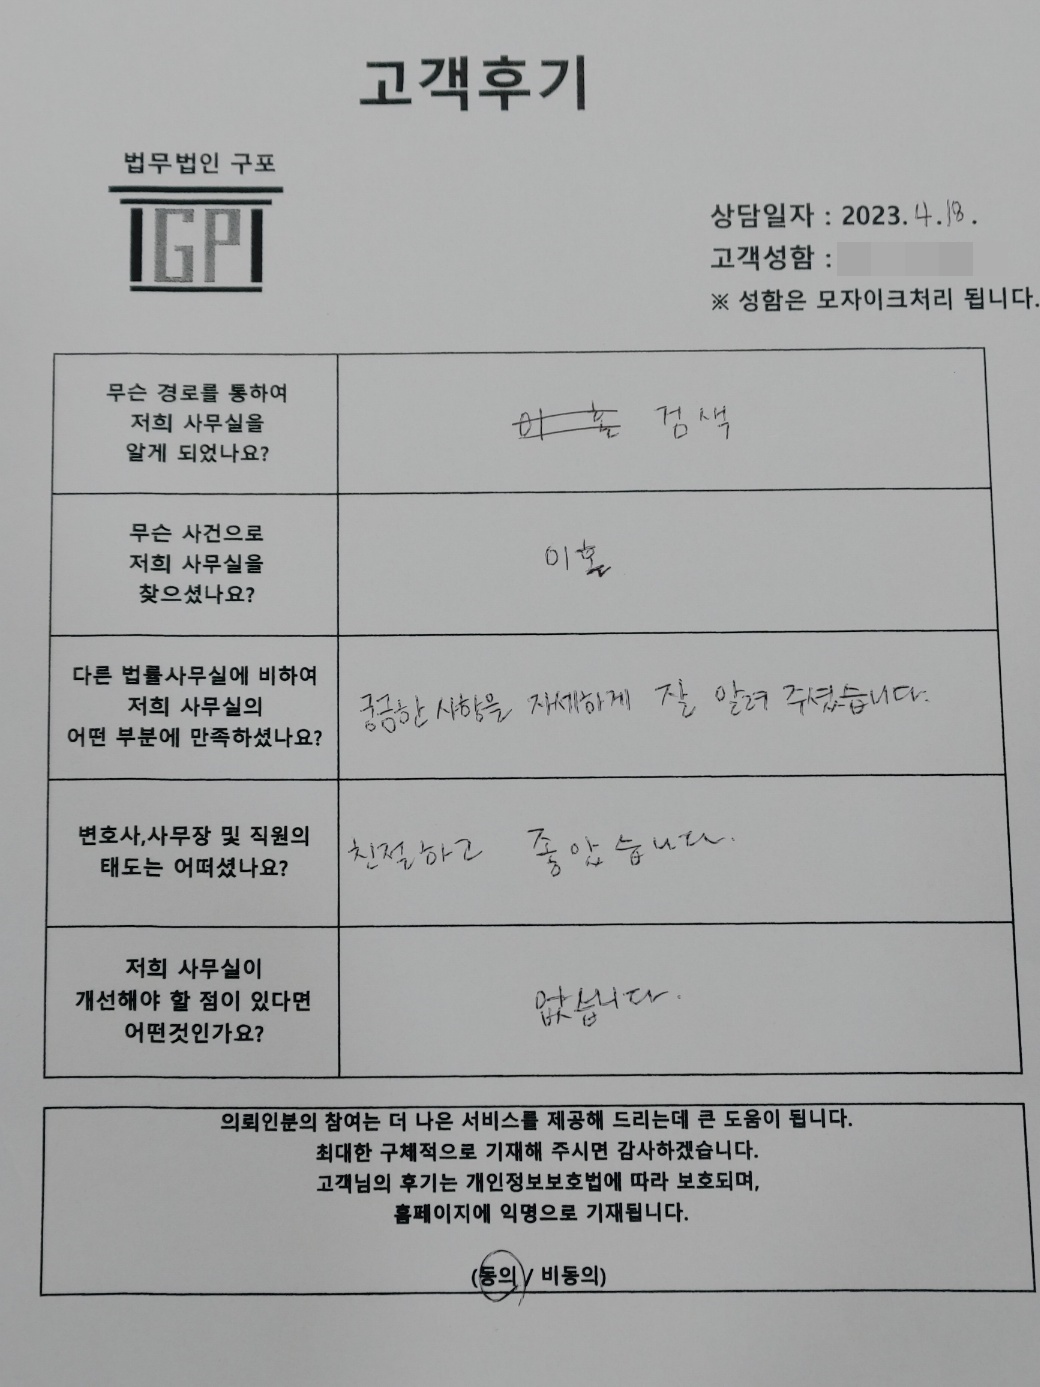 고객후기
법무법인 구포
GP
상담일자 : 2023.4.18.
고객성함 :
※ 성함은 모자이크처리 됩니다.
무슨 경로를 통하여
저희 사무실을
알게 되었나요?
이혼 검색
무슨 사건으로
저희 사무실을
찾으셨나요?
이혼
다른 법률사무실에 비하여
저희 사무실의
어떤 부분에 만족하셨나요?
궁금한 사항을 자세하게 잘 알려 주셨습니다.
변호사,사무장 및 직원의
태도는 어떠셨나요?
친절하고 좋았습니다.
저희 사무실이
개선해야 할 점이 있다면
어떤것인가요?
없습니다.
의뢰인분의 참여는 더 나은 서비스를 제공해 드리는데 큰 도움이 됩니다.
최대한 구체적으로 기재해 주시면 감사하겠습니다.
고객님의 후기는 개인정보보호법에 따라 보호되며,
홈페이지에 익명으로 기재됩니다.
(동의 / 비동의)